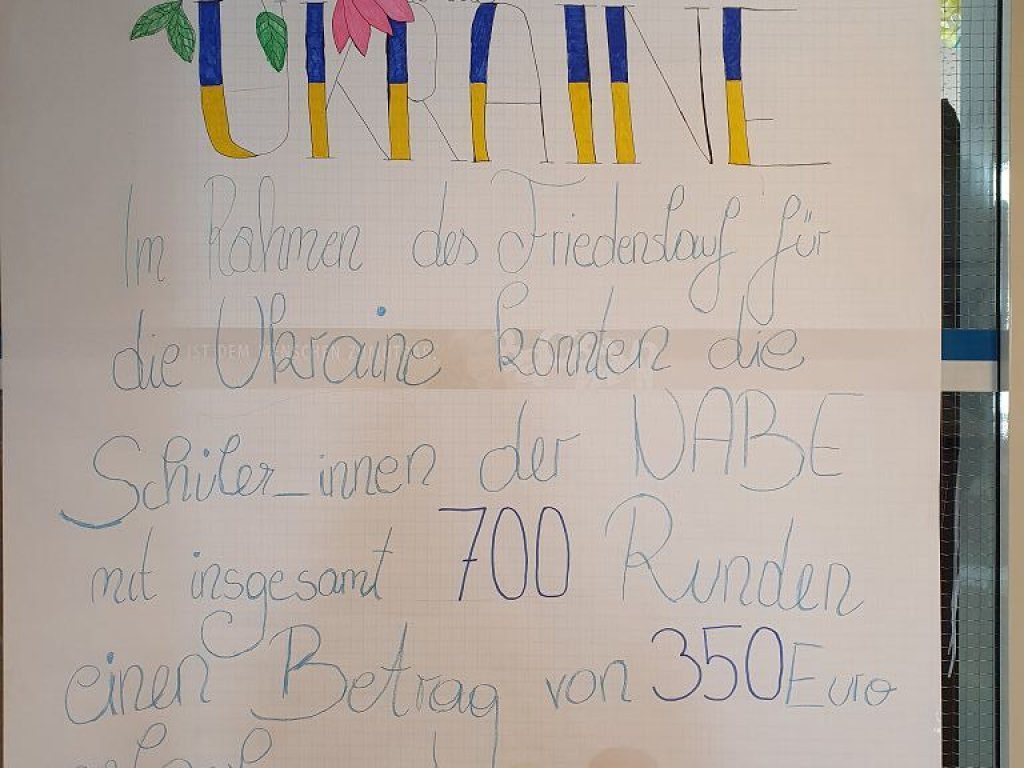 UKRAINE
Im Rahmen des Friedenslauf für
die Ukraine konnten die
Schüler_innen der NABE
mit insgesamt 700 Runden
einen Betrag von 350 Euro